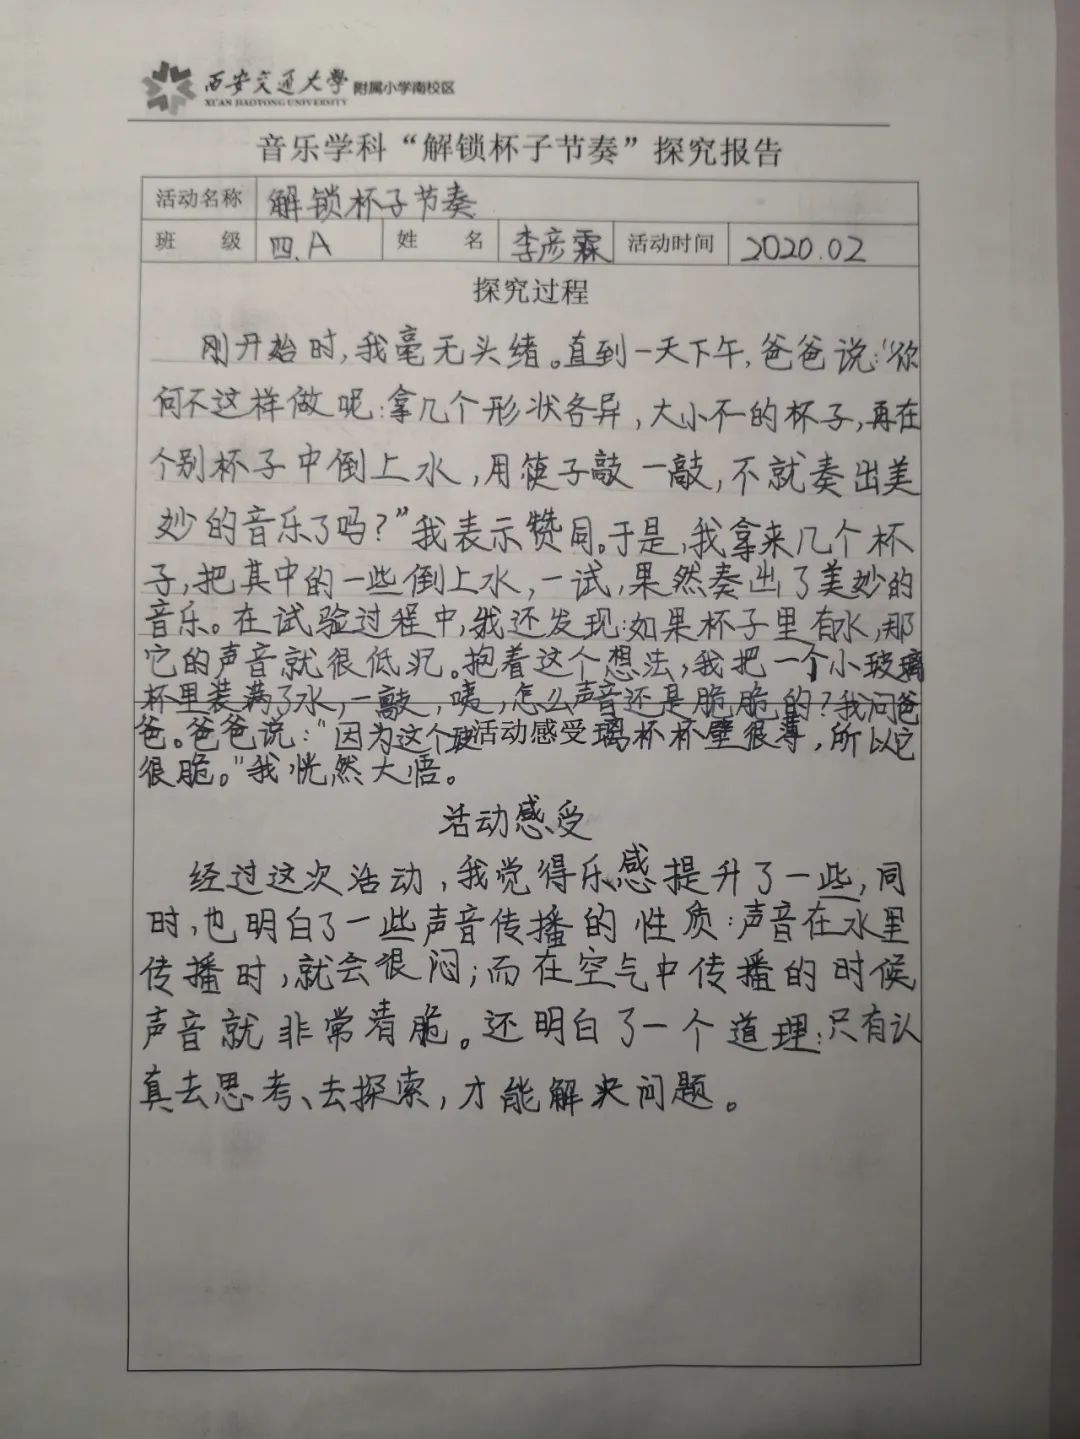 西安交通大學 附属小学南校区
XI'AN JIAOTONG UNIVERSITY
音乐学科“解锁杯子节奏”探究报告
活动名称 解锁杯子节奏
班 级 四.A 姓 名 李彦霖 活动时间 2020.02
探究过程
刚开始时,我毫无头绪。直到一天下午,爸爸说:“你
何不这样做呢:拿几个形状各异,大小不一的杯子,再在
个别杯子中倒上水,用筷子敲一敲,不就奏出美
妙的音乐了吗?”我表示赞同。于是,我拿来几个杯
子,把其中的一些倒上水,一试,果然奏出了美妙的
音乐。在试验过程中,我还发现:如果杯子里有水,那
它的声音就很低沉。抱着这个想法,我把一个小玻璃
杯里装满了水,一敲,咦,怎么声音还是脆脆的?我问爸
爸。爸爸说:“因为这个玻活动感受璃杯杯壁很薄,所以它
很脆。”我恍然大悟。
活动感受
经过这次活动,我觉得乐感提升了一些,同
时,也明白了一些声音传播的性质:声音在水里
传播时,就会很闷;而在空气中传播的时候
声音就非常清脆。还明白了一个道理:只有认
真去思考、去探索,才能解决问题。